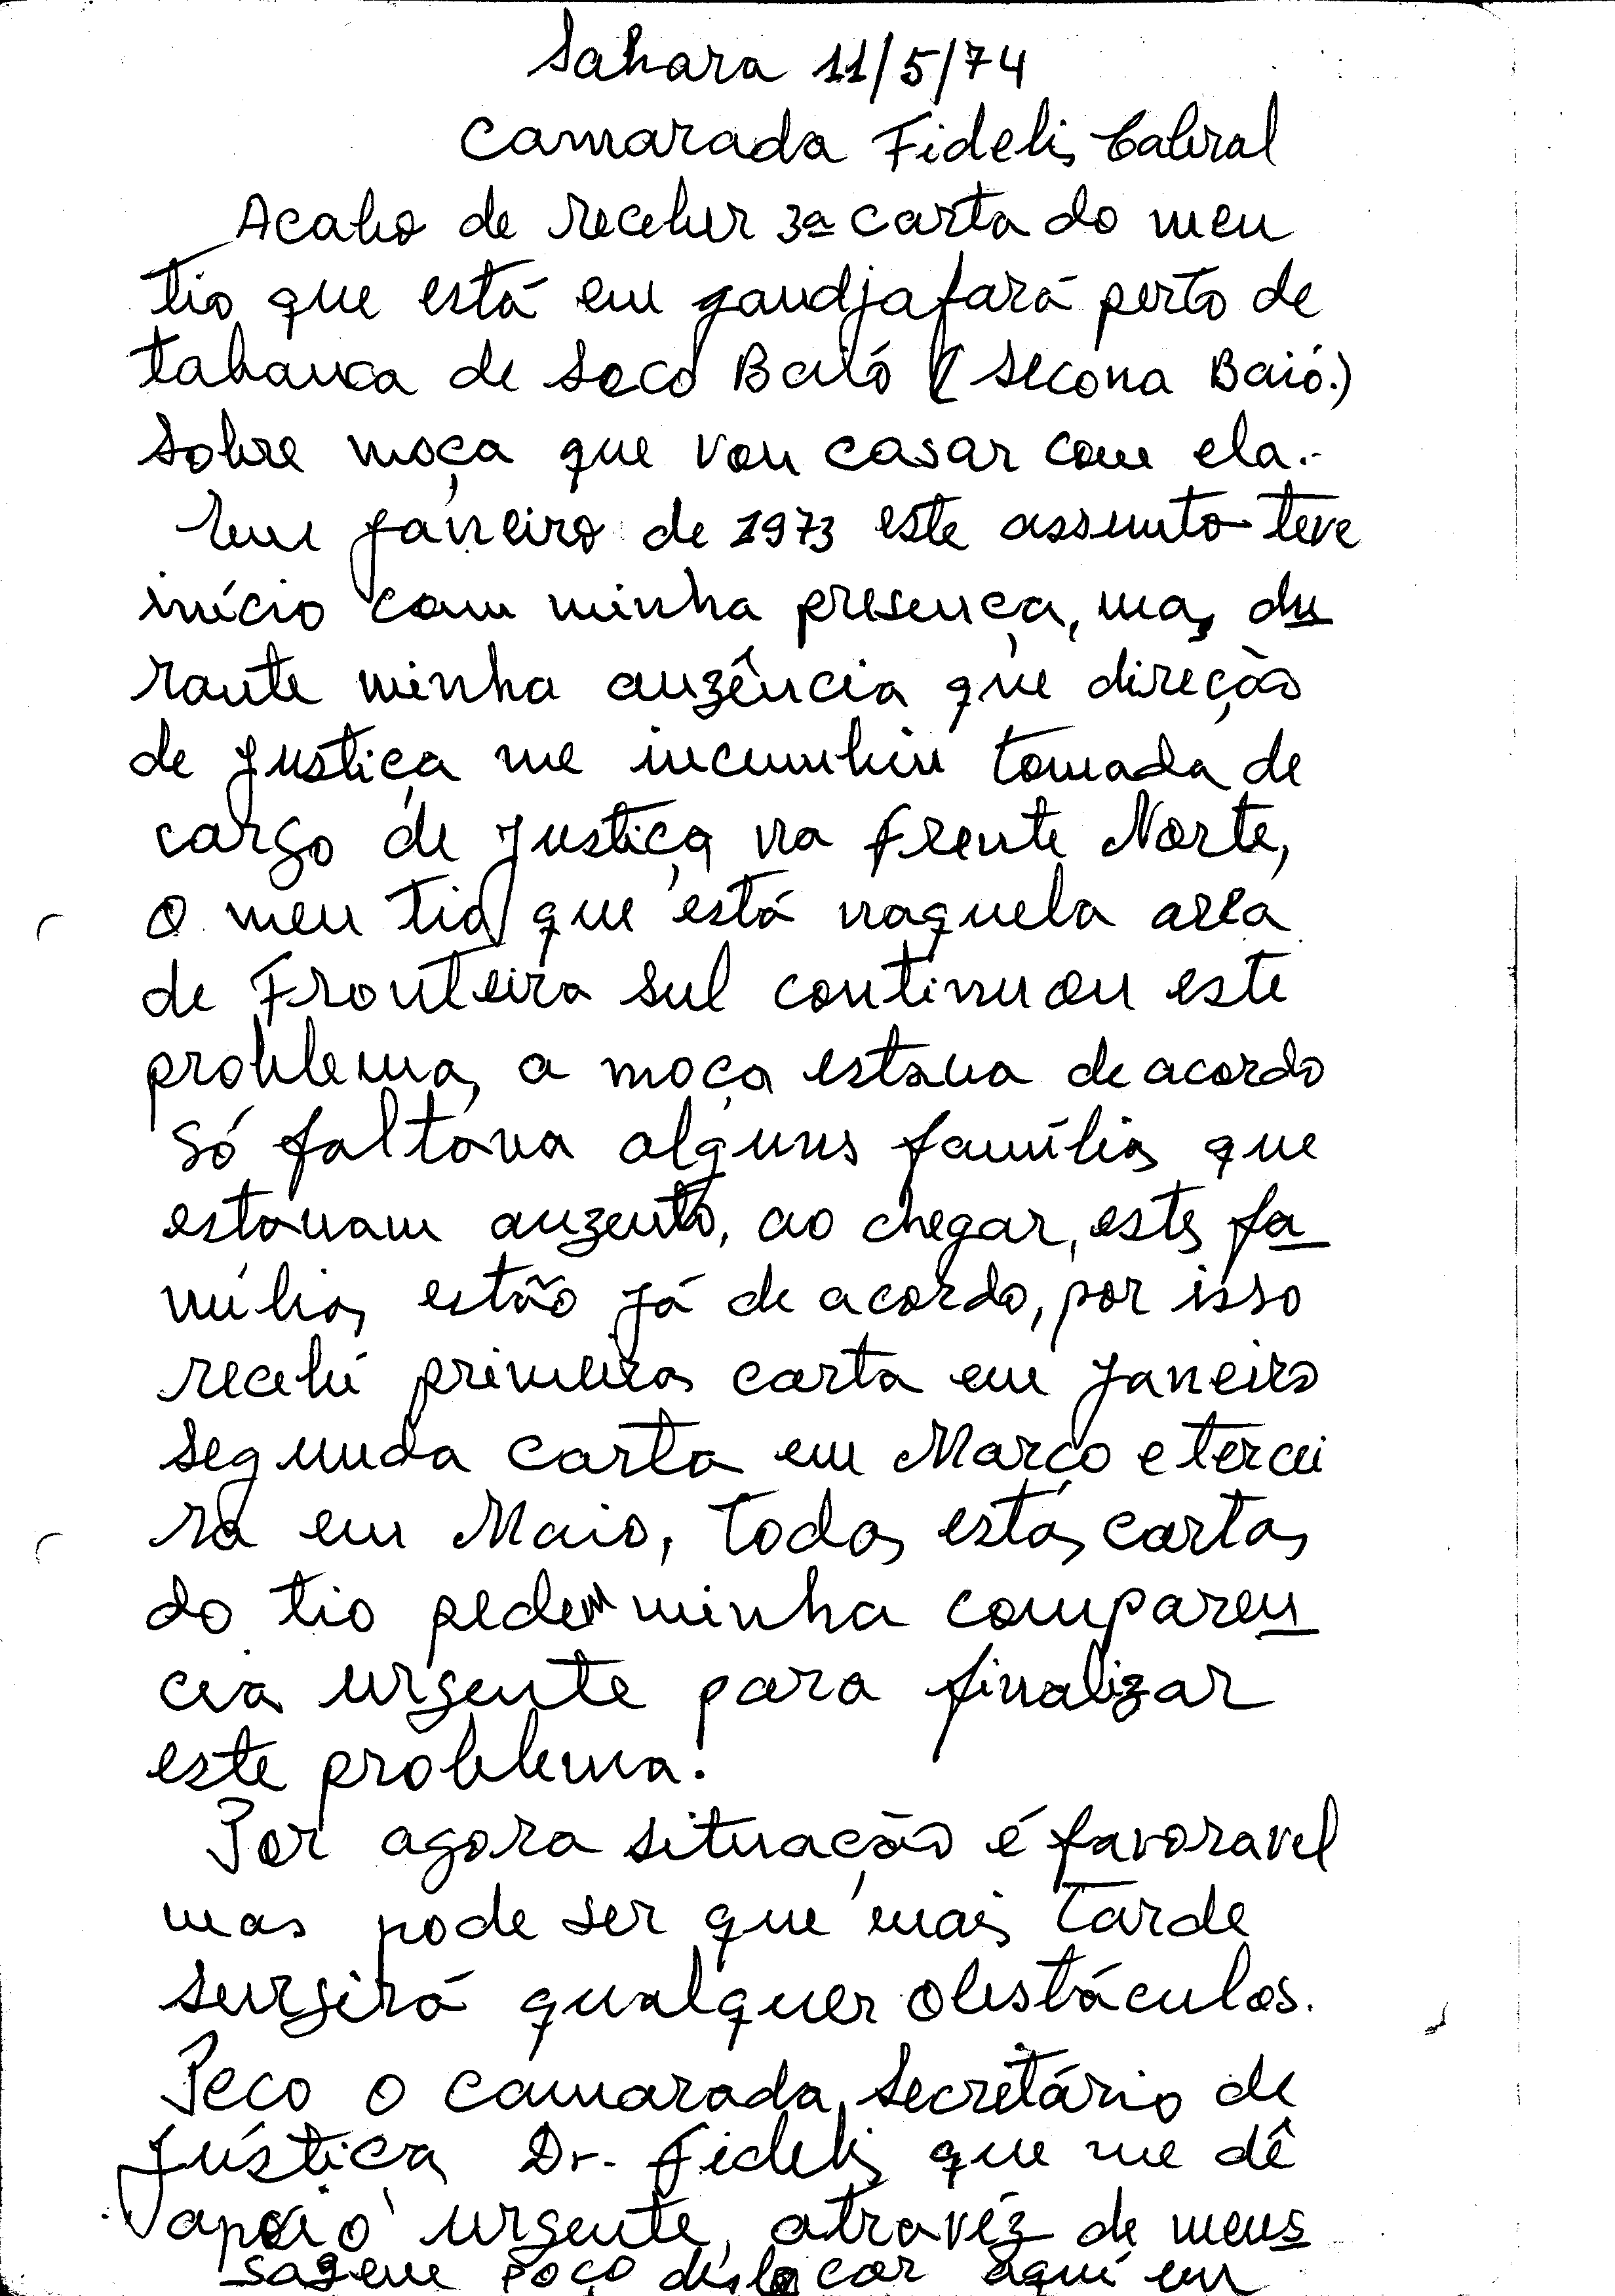 Sahara 11/5/74
Camarada Fidelis Cabral
Acabo de receber 3ª carta do meu
tio que está em gandjafará perto de
tabanca de Soco Baió (Secona Baió.)
Sobre moça que vou casar com ela.-
Em janeiro de 1973 este assunto teve
início com minha presença, mas du
rante minha auzência que direção
de justiça me incumbiu tomada de
cargo de justiça na frente Norte,
O meu tio que está naquela area
de Fronteira sul continuou este
problema, a moça estava de acordo
só faltava alguns famílias que
estavam auzento, ao chegar, estes fa
mílias estão já de acordo, por isso
recebi primeira carta em janeiro
segunda carta em Março e tercei
ra em Maio, todas estás cartas
do tio pedem minha comparen
cia urgente para finalizar
este problema.
Por agora situação é favoravel
mas pode ser que mais tarde
surgirá qualquer obstáculos.
Peço o camarada, Secretário de
Jústiça Dr. Fidelis que me dê
apoio urgente, atravéz de mens
sagem poço deslocar aqui em